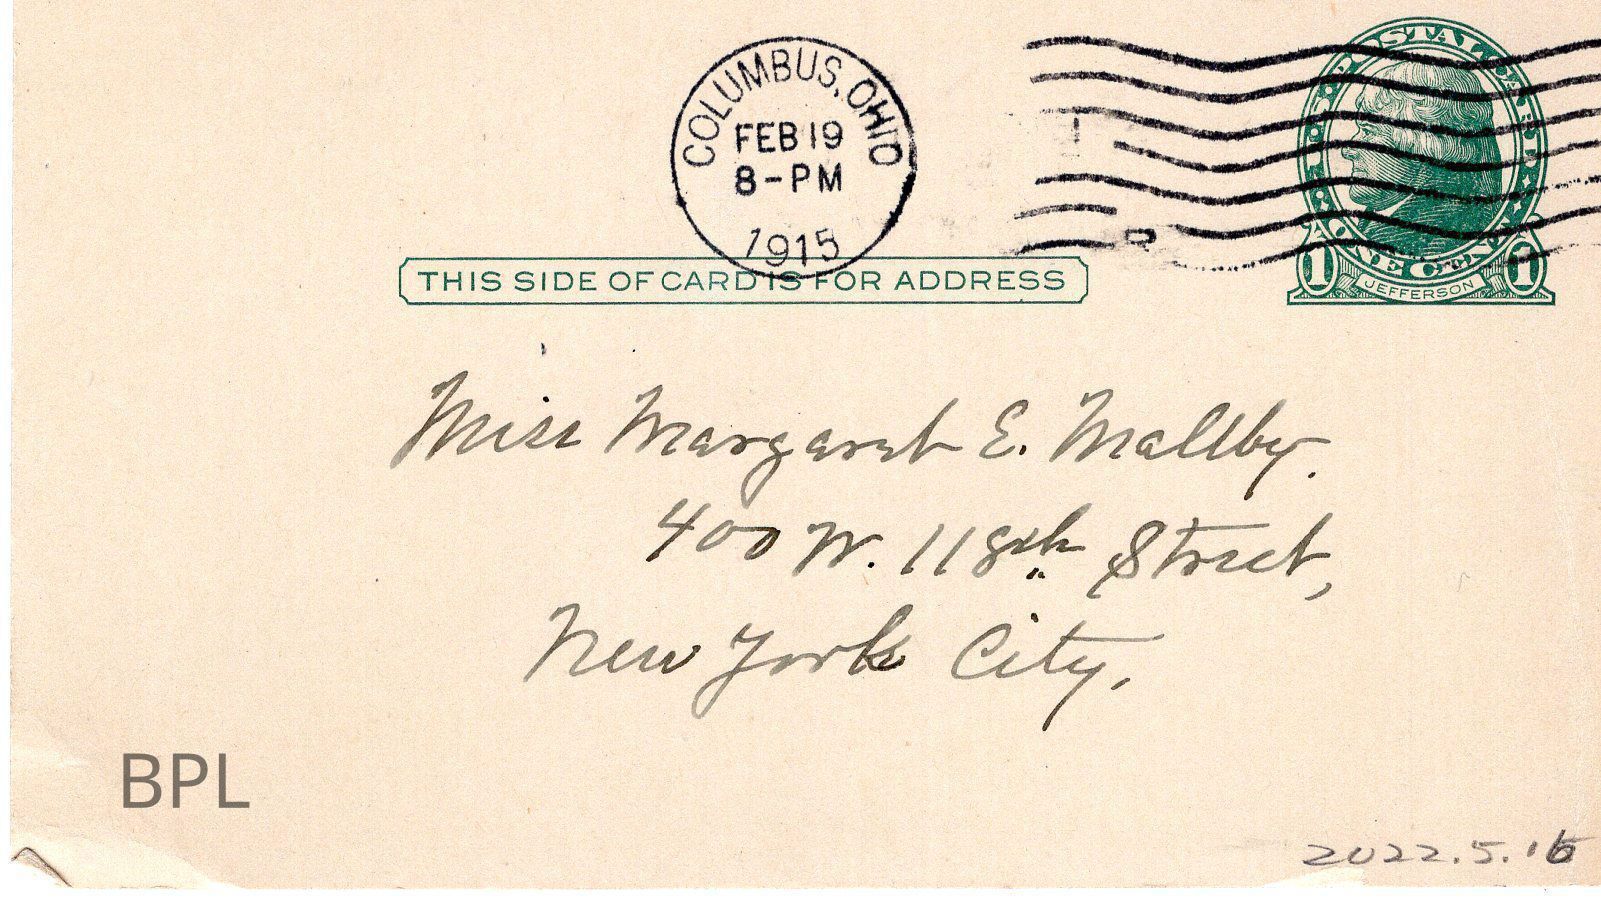 COLUMBUS, OHIO
FEB 19
8-PM
1915
U.S. POSTAL CARD
ONE CENT
1 JEFFERSON 1
THIS SIDE OF CARD IS FOR ADDRESS
Miss Margaret E. Maltby.
400 W. 118th Street,
New York City.
BPL
2022.5.16